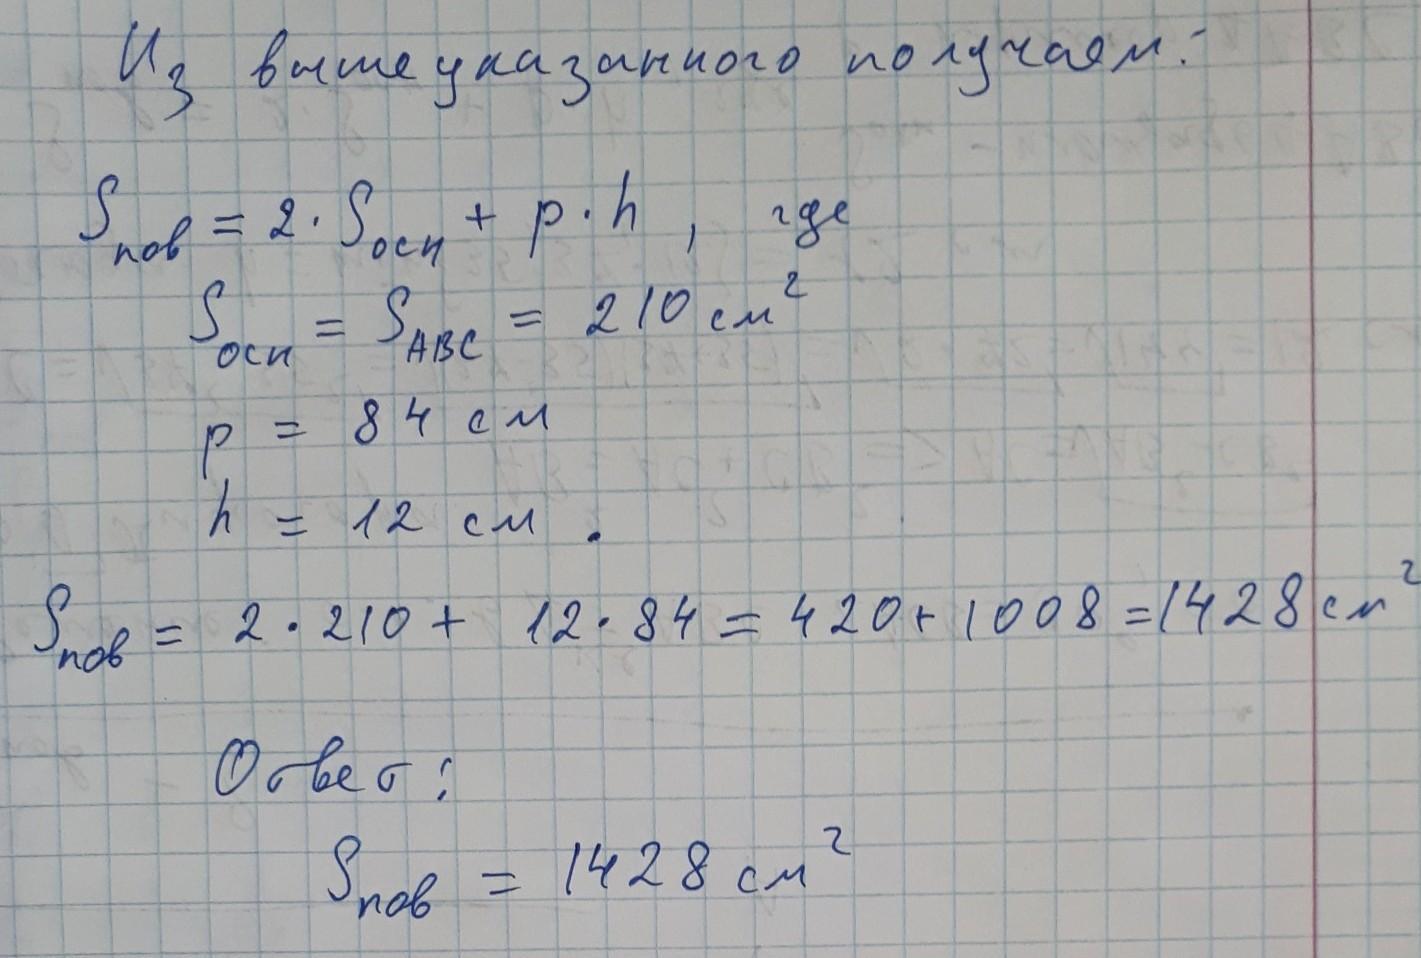 Из вышеуказанного получаем:
Sпов = 2 · Sосн + p · h , где
Sосн = SABC = 210 см²
p = 84 см
h = 12 см .
Sпов = 2 · 210 + 12 · 84 = 420 + 1008 = 1428 см²
Ответ:
Sпов = 1428 см²